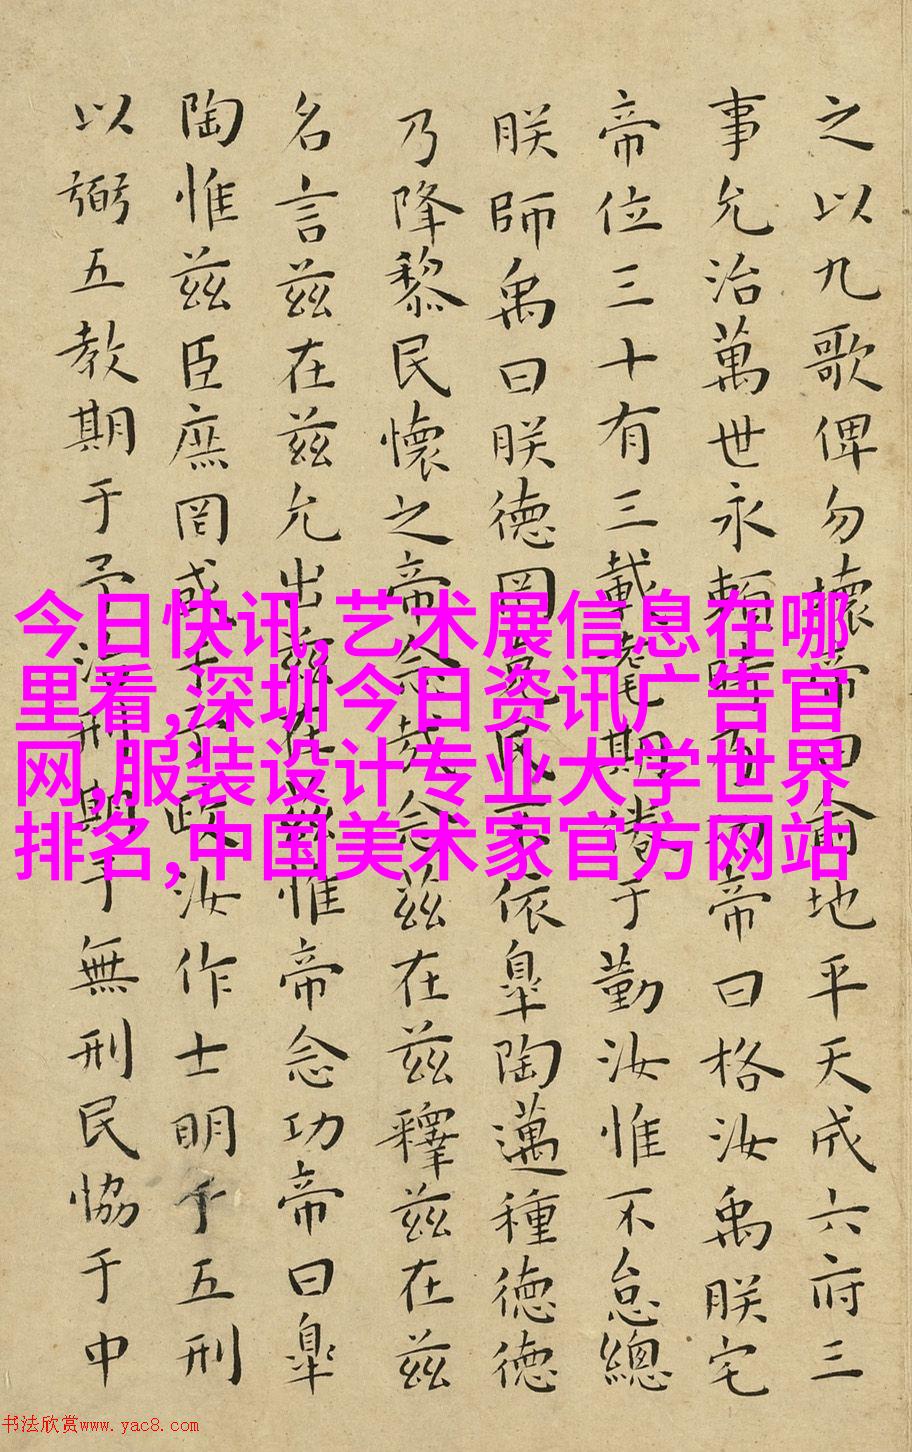 之以九歌俾勿壞帝曰俞地平天成六府三
事允治萬世永賴時乃功帝曰格汝禹朕宅
帝位三十有三載耄期倦于勤汝惟不怠總
朕師禹曰朕德罔克民不依皐陶邁種德德
乃降黎民懷之帝念哉念兹在兹釋兹在兹
名言兹在兹允出兹在兹惟帝念功帝曰皐
陶惟兹臣庶罔或干予政汝作士明于五刑
以弼五教期于予治刑期于無刑民恊于中
今日快讯,艺术展信息在哪
里看,深圳今日资讯广告官
网,服装设计专业大学世界
排名,中国美术家官方网站
书法欣赏www.yac8.com